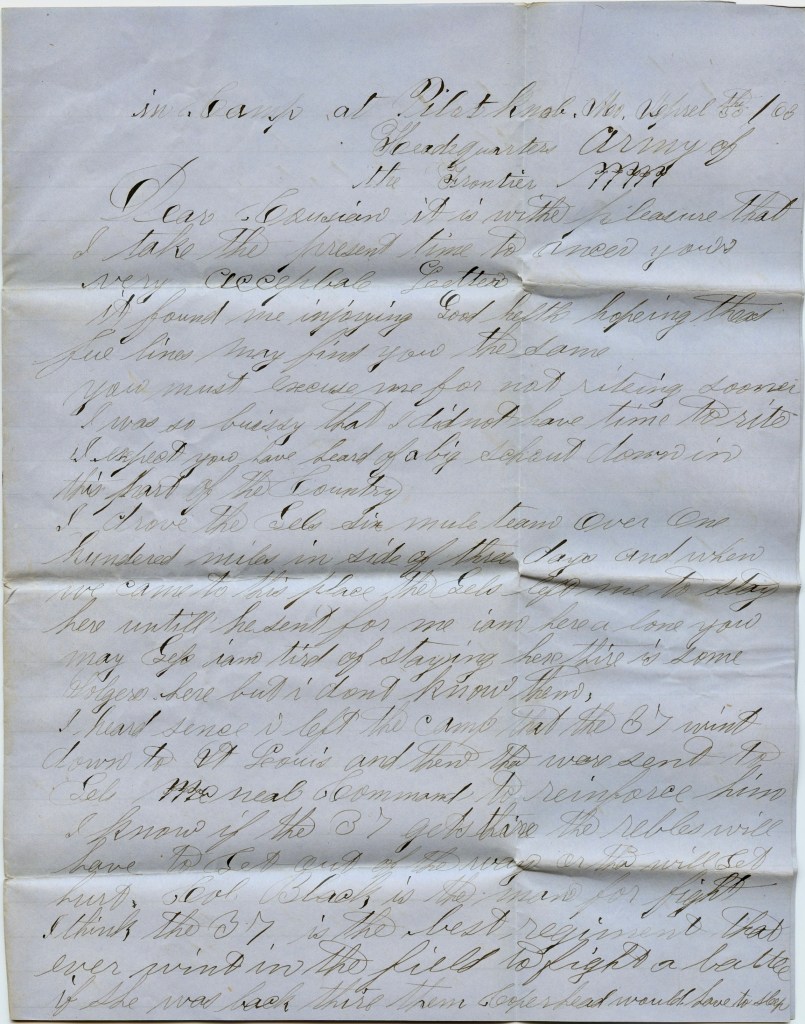 in Camp at Pilot Knob. Mo. Aprel /63
Headquarters Army of
the Frontier
Dear Cousian it is withe pleasure that
I take the present time to ancer yours
very accepbale Letter
it found me injoying Good helth hopeing thees
few lines may find you the same
you must excuse me for not riteing sooner
I was so buissy that I did not have time to rite
I expect you have heard of a big schout down in
this part of the Country
I drove the Gels six mule team over one
hundered miles in side of three days and when
we came to this place the Gels left me to stay
here untill he sent for me iam here a lone you
may Gess iam tird of staying here thire is some
Solgers here but i dont know them,
I heard sence i left the camp that the 37 wint
down to St Louis and then tha were sent to
Gel Mc neal Command to reinforce him
I know if the 37 gets thire the rebles will
have to Get out of the way or tha will Get
hurt. Col Black is the man for fight
I think the 37 is the best regiment that
ever wint in the field to fight a battle
if she was back thire them Coperhead would have to sleep